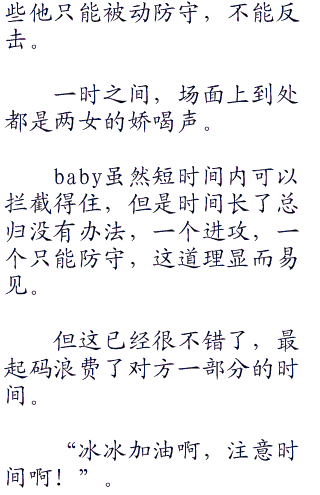 些他只能被动防守，不能反
击。
一时之间，场面上到处
都是两女的娇喝声。
baby虽然短时间内可以
拦截得住，但是时间长了总
归没有办法，一个进攻，一
个只能防守，这道理显而易
见。
但这已经很不错了，最
起码浪费了对方一部分的时
间。
“冰冰加油啊，注意时
间啊！”。